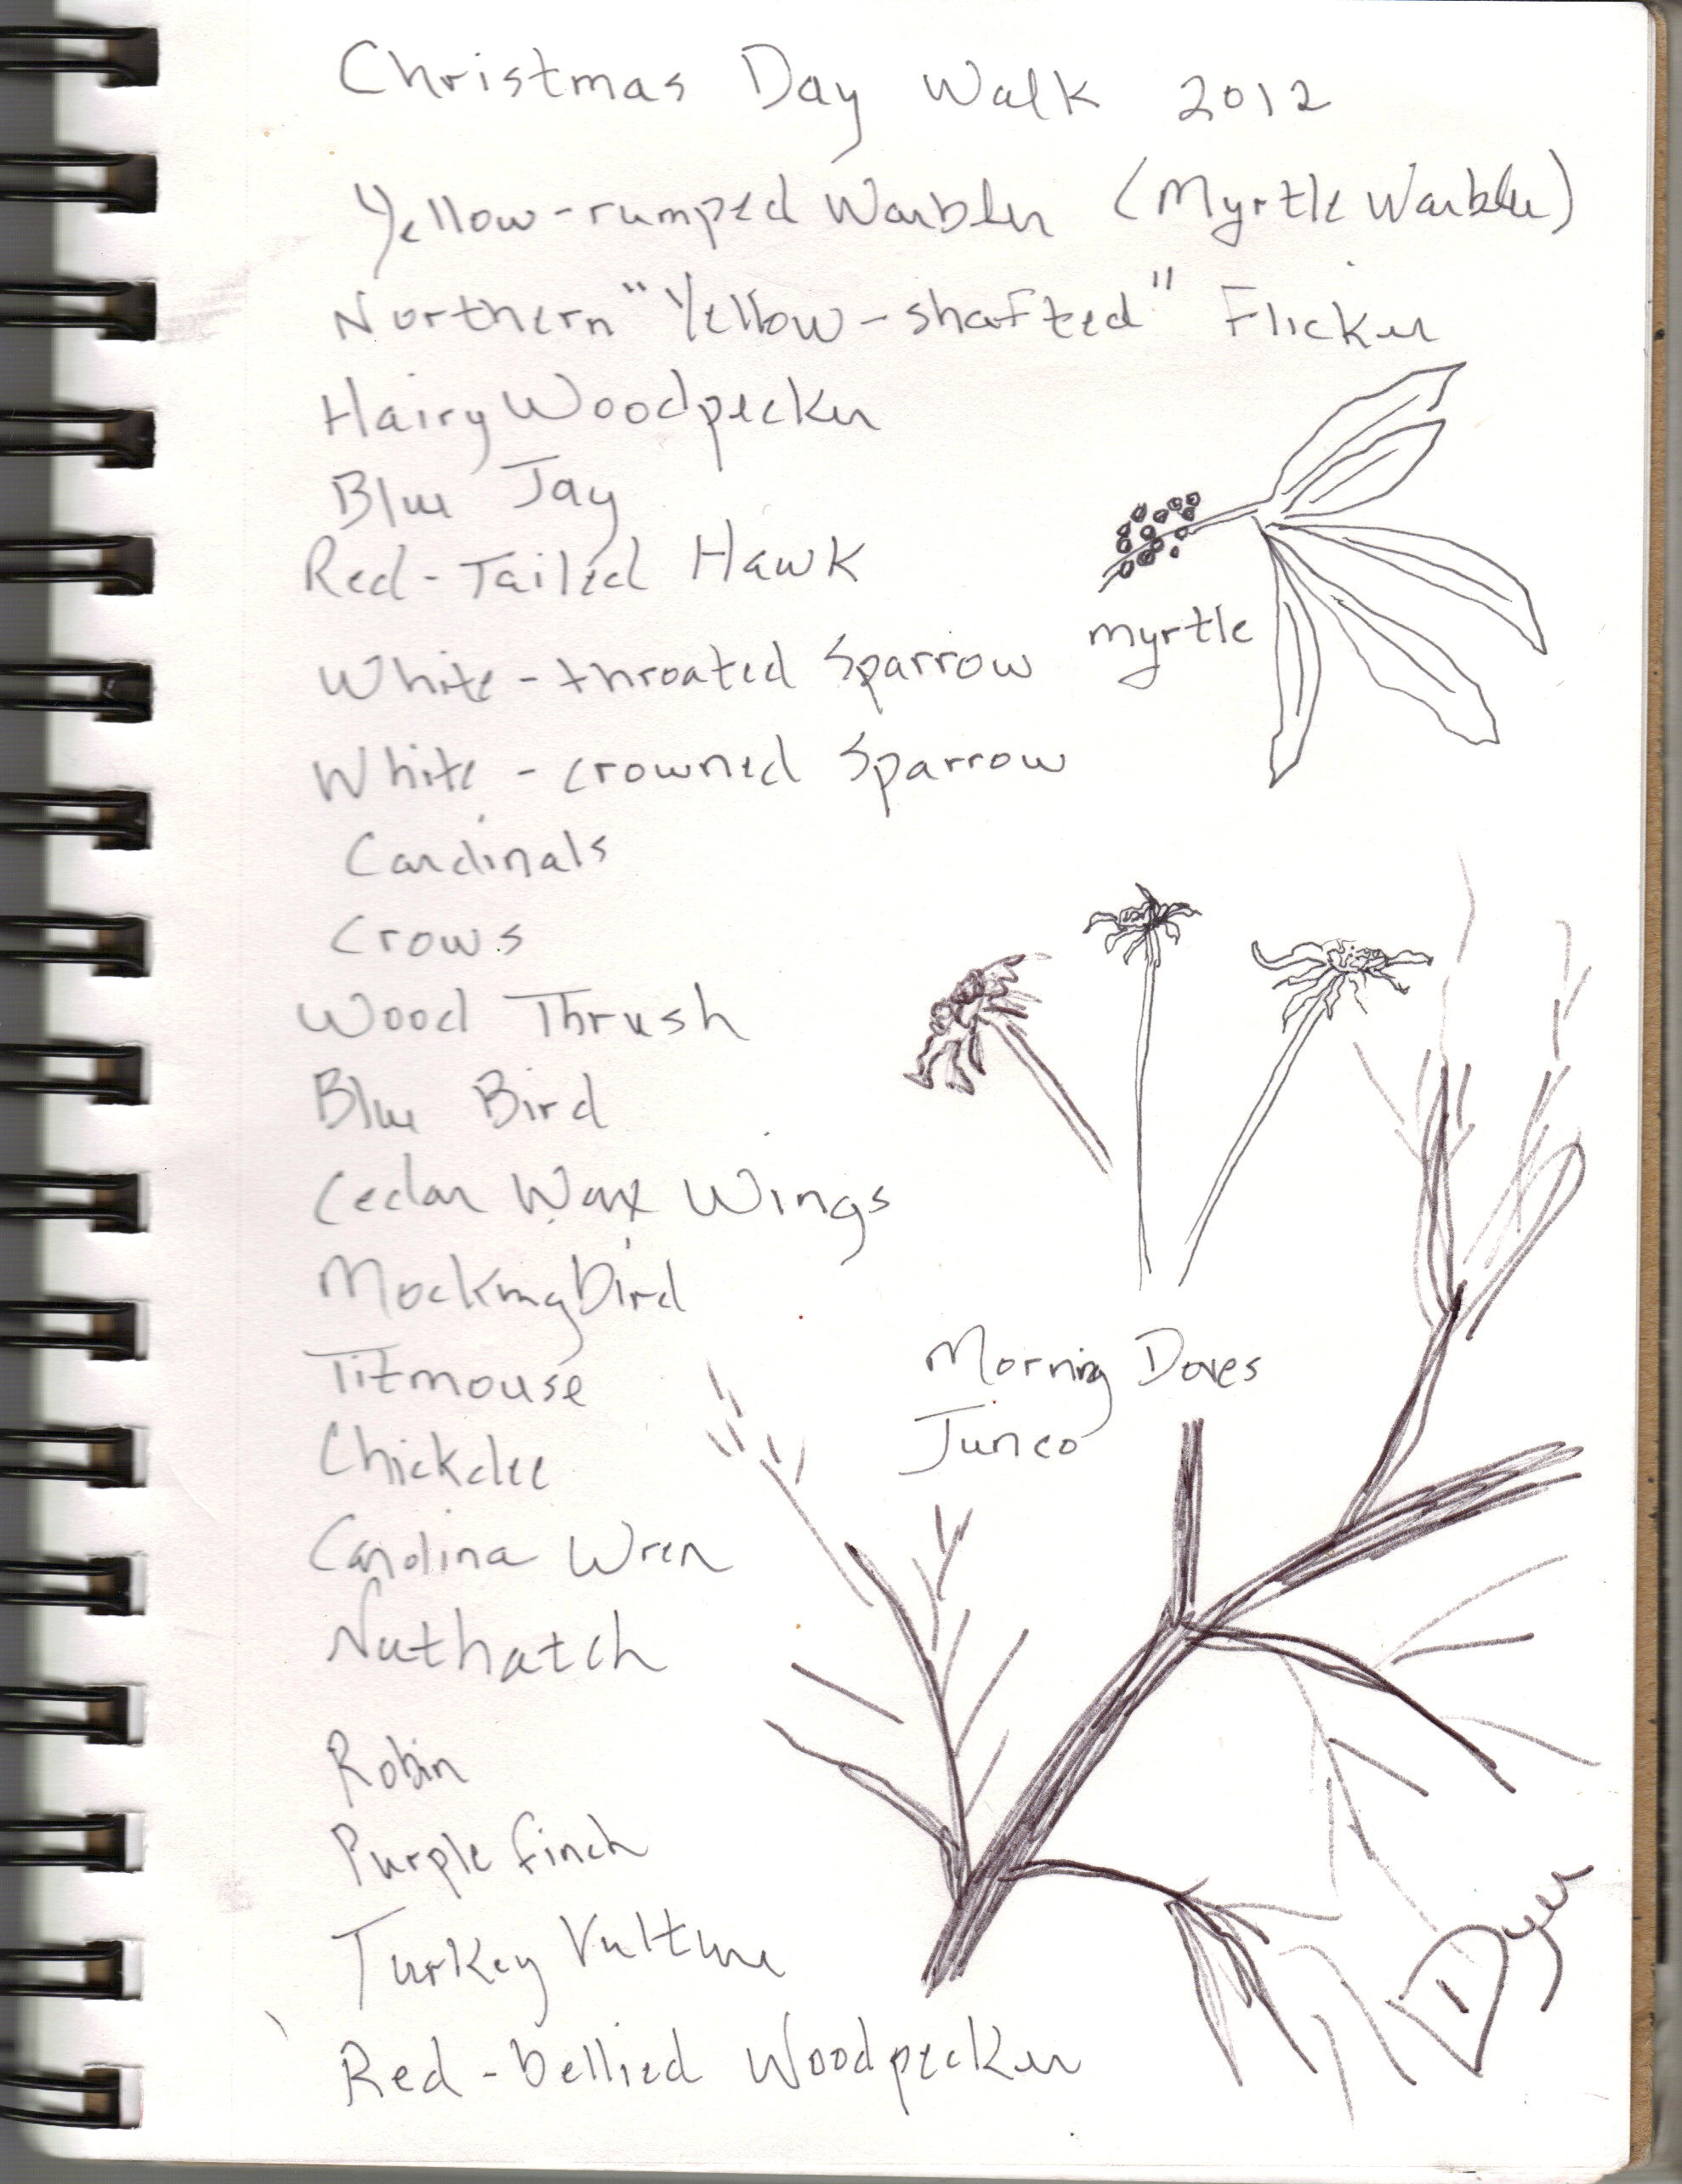 Christmas Day Walk 2012
Yellow-rumped Warbler (Myrtle Warbler)
Northern "Yellow-shafted" Flicker
Hairy Woodpecker
Blue Jay
Red-Tailed Hawk
White-throated Sparrow
myrtle
White-crowned Sparrow
Cardinals
Crows
Wood Thrush
Blue Bird
Cedar Wax Wings
Mockingbird
Titmouse
Chickdee
Carolina Wren
Nuthatch
Morning Doves
Junco
Robin
Purple finch
Turkey Vulture
Red-bellied Woodpecker
Dyer